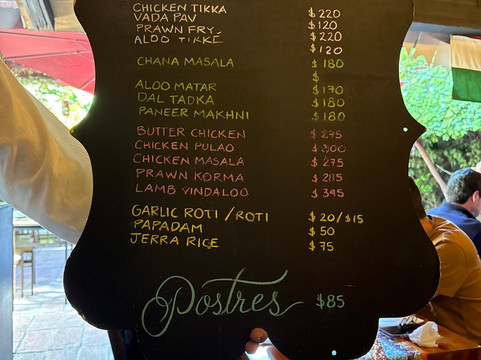 CHICKEN TIKKA $220
VADA PAV $120
PRAWN FRY $220
ALOO TIKKE $120
CHANA MASALA $180
$
ALOO MATAR $170
DAL TADKA $180
PANEER MAKHNI $180
BUTTER CHICKEN $275
CHICKEN PULAO $300
CHICKEN MASALA $275
PRAWN KORMA $285
LAMB VINDALOO $395
GARLIC ROTI / ROTI $20/$15
PAPADAM $50
JERRA RICE $75
Postres $85